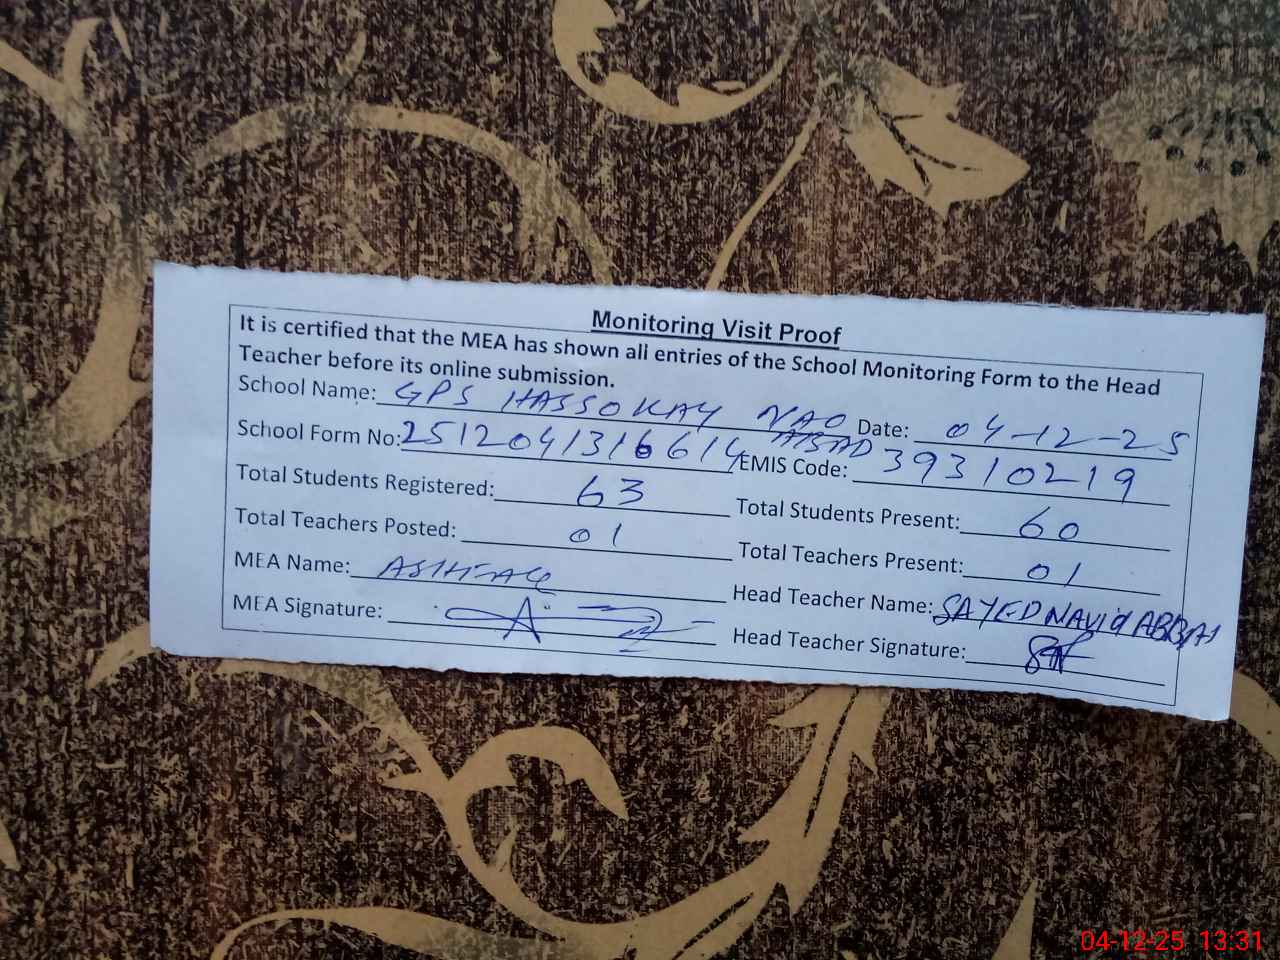 Monitoring Visit Proof
It is certified that the MEA has shown all entries of the School Monitoring Form to the Head
Teacher before its online submission.
School Name: GPS HASSOKAY NAO ABAD Date: 04-12-25
School Form No: 2512041316614 EMIS Code: 39310219
Total Students Registered: 63 Total Students Present: 60
Total Teachers Posted: 01 Total Teachers Present: 01
MEA Name: ASHFAQ Head Teacher Name: SAYED NAVid ABBAS
MEA Signature: Head Teacher Signature:
04-12-25 13:31